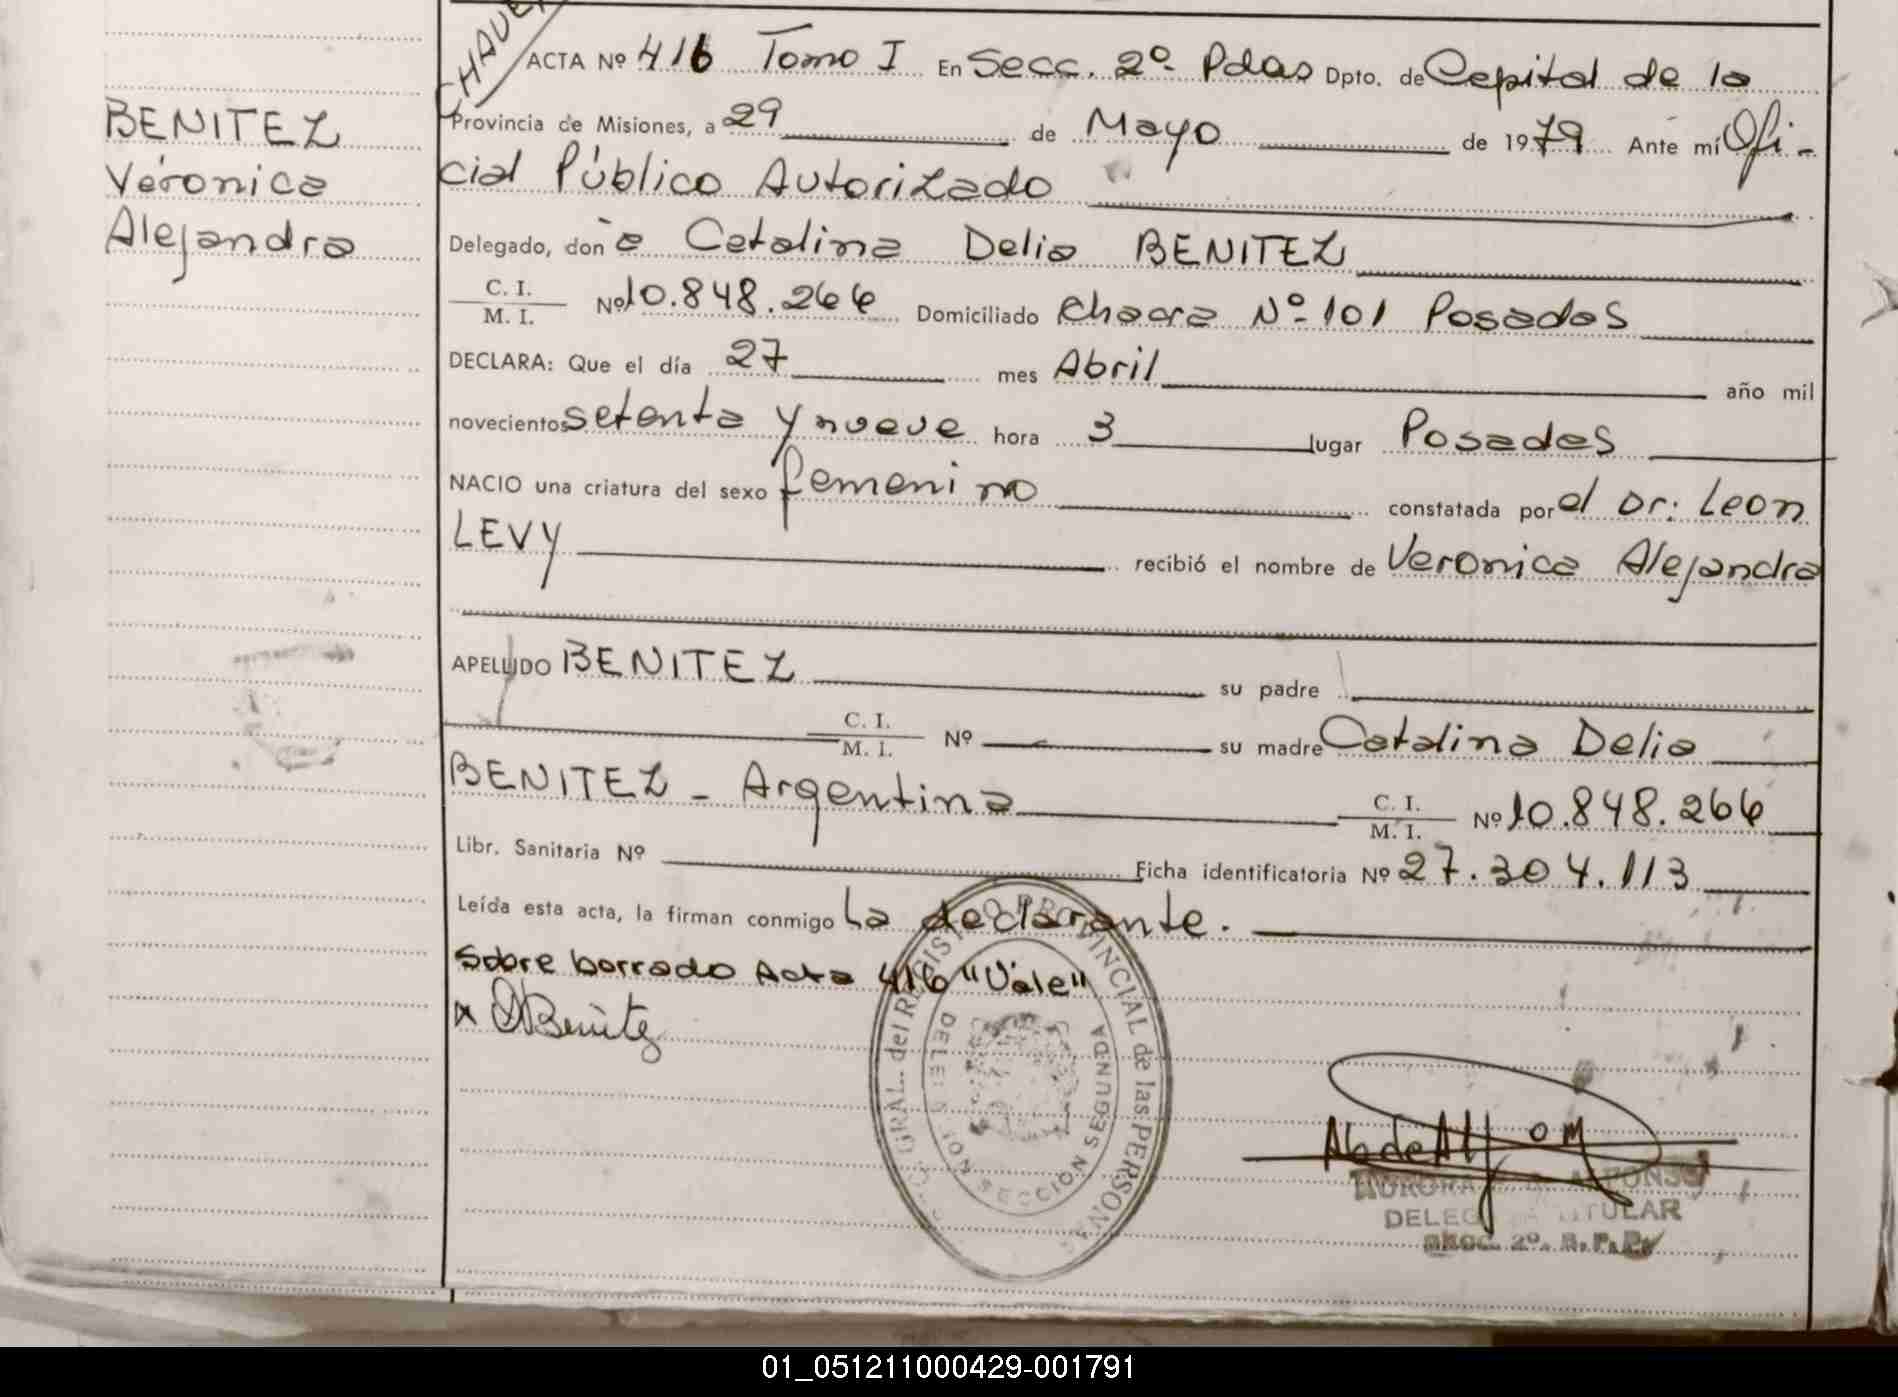 CHAVEZ
ACTA Nº 416 Tomo I En Secc. 2º. Pdas Dpto. de Capital de la
Provincia de Misiones, a 29 de Mayo de 1979 Ante mí Ofi-
cial Público Autorizado
BENITEZ
Verónica
Alejandra
Delegado, don a Catalina Delia BENITEZ
C. I.
M. I. Nº 10.848.266 Domiciliado Chacra Nº 101 Posadas
DECLARA: Que el día 27 mes Abril año mil
novecientos setenta y nueve hora 3 lugar Posadas
NACIO una criatura del sexo femenino constatada por el Dr: Leon
LEVY recibió el nombre de Veronica Alejandra
APELLIDO BENITEZ su padre
C. I.
M. I. Nº su madre Catalina Delia
BENITEZ - Argentina C. I.
M. I. Nº 10.848.266
Libr. Sanitaria Nº Ficha identificatoria Nº 27.304.113
Leída esta acta, la firman conmigo la declarante.
Sobre borrado Acta 416 "Vale"
x Benitez
GRAL. del REGISTRO PROVINCIAL de las PERSONAS
SECCION SEGUNDA
AbdeAlf
AURORA ALFONSO
DELEGADA TITULAR
SECC. 2º. R. P. P.
01_051211000429-001791